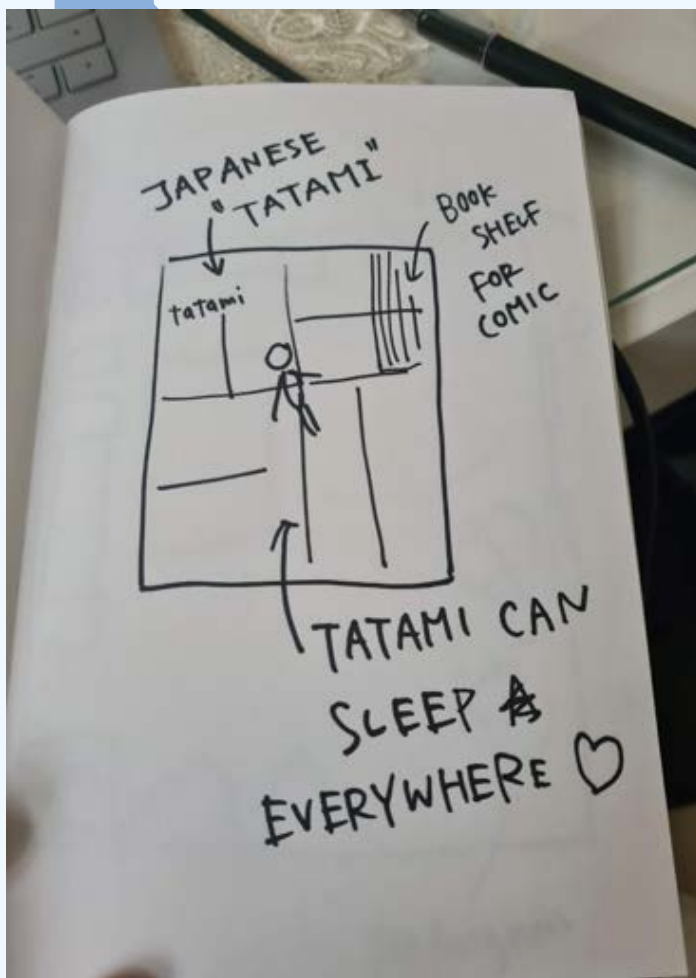 JAPANESE
"TATAMI"
BOOK
SHELF
FOR
COMIC
tatami
TATAMI CAN
SLEEP
EVERYWHERE ♡